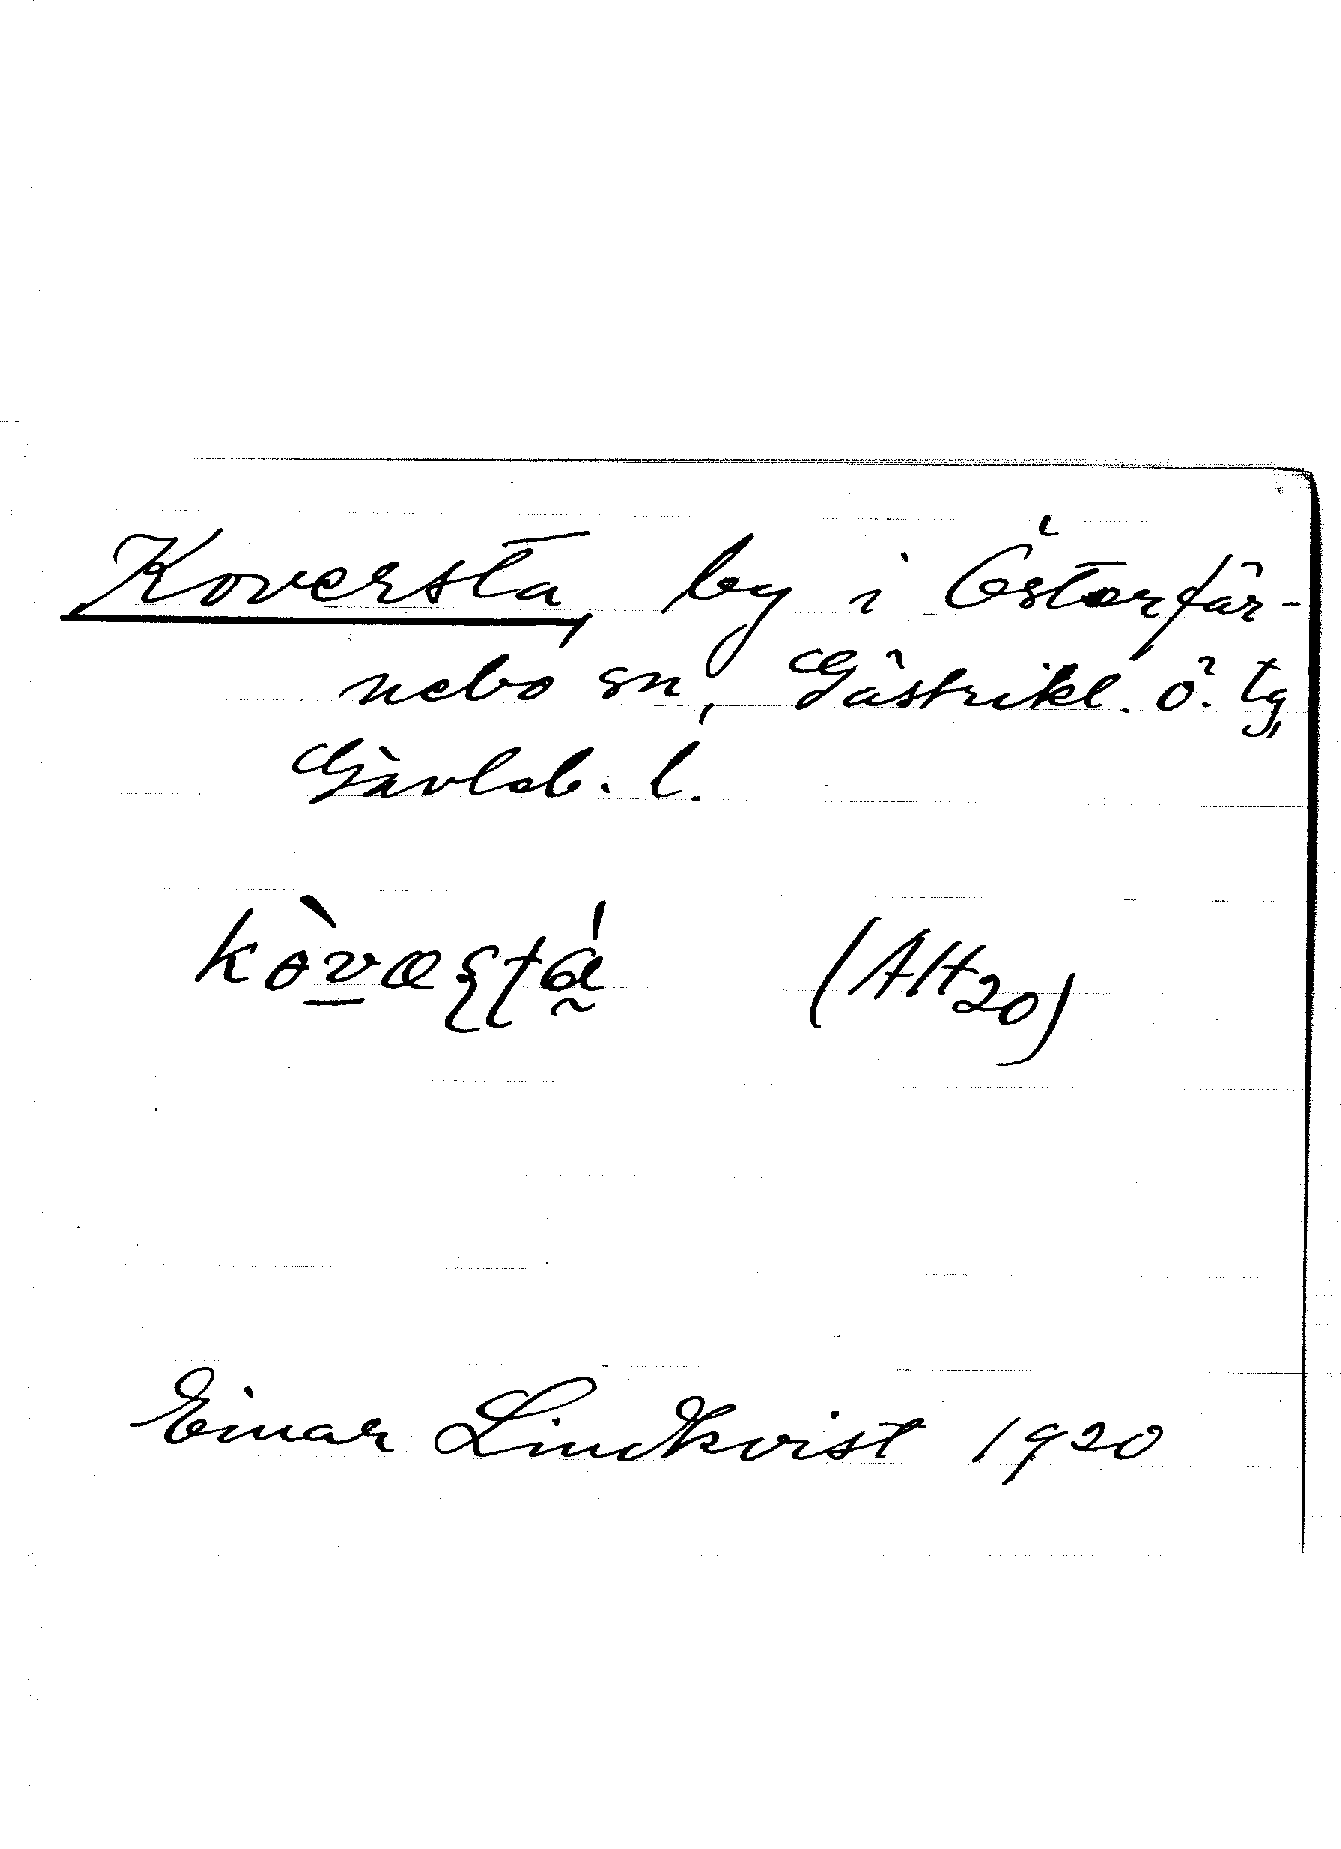 Koversta, by i Österfär-
nebo sn, Gästrikl. ö. tg,
Gävleb. l.
kòvæʂʈá̰ (AH20)
Einar Lindkvist 1920